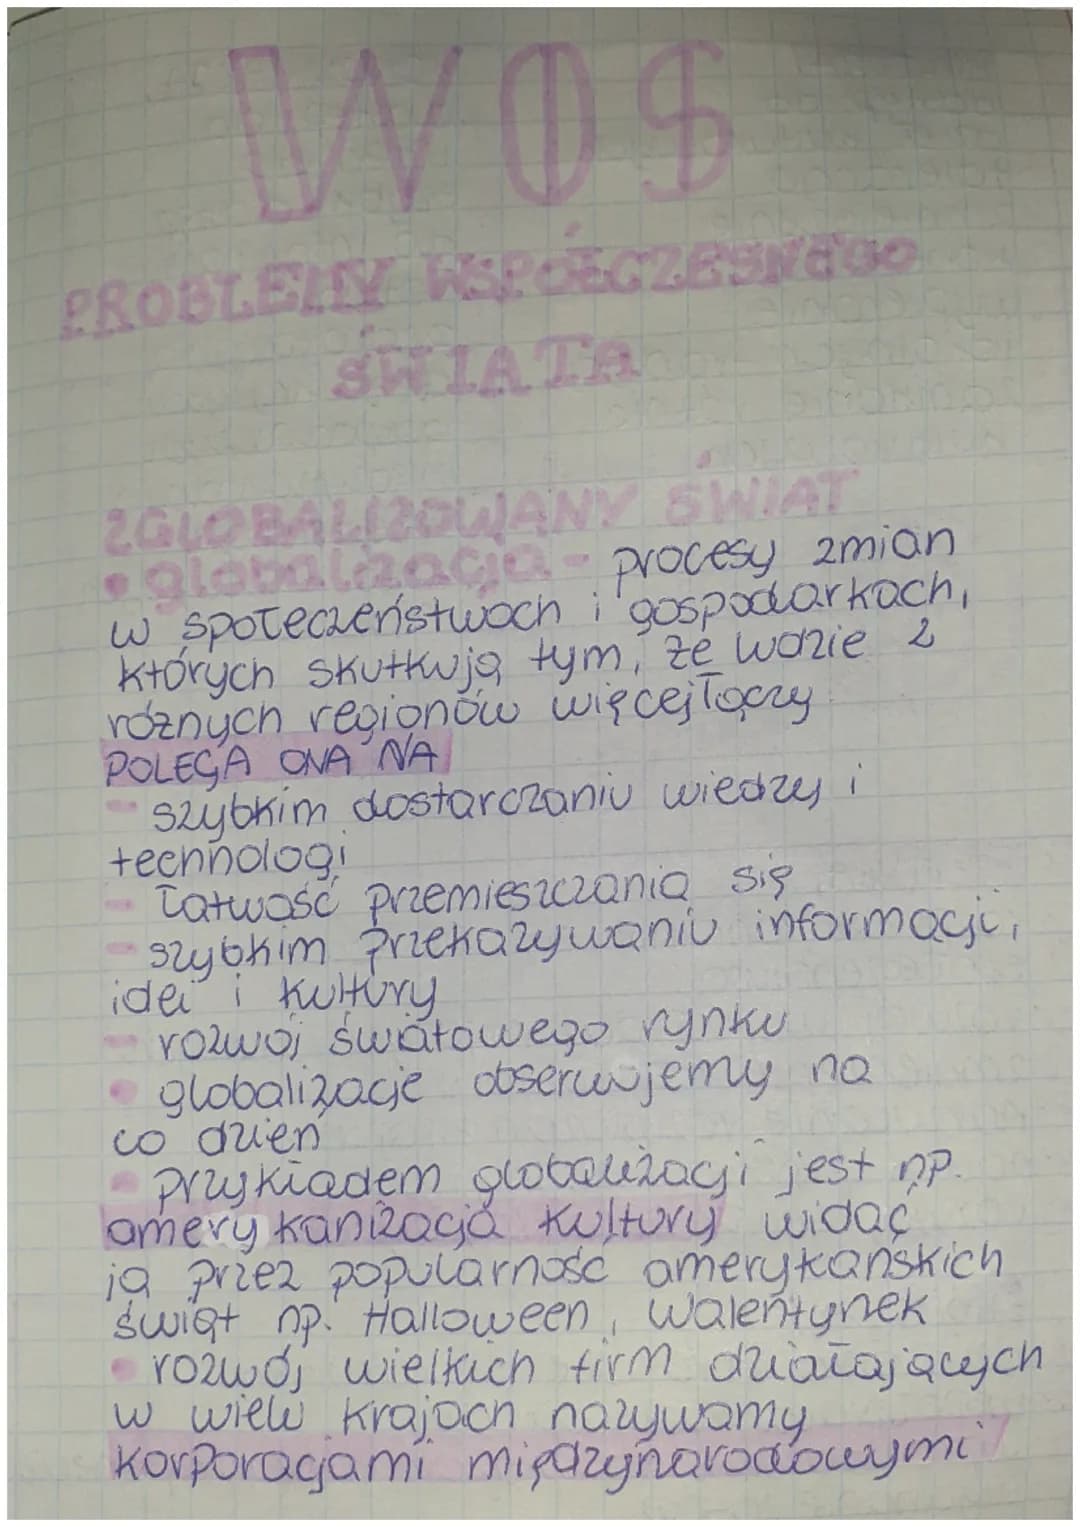 WOS
PROBLEMY WSPÓŁCZESNEGO
ŚWIATA
ZGLOBALIZOWANY ŚWIAT
• globalizacja - procesy zmian
w społeczeństwach i gospodarkach,
których skutkują tym, że wazie 2
różnych regionów więcej łączy
POLEGA ONA NA
- szybkim dostarczaniu wiedzy i
technologi
- łatwość przemieszczania się
- szybkim przekazywaniu informacji,
idei i kultury
- rozwój światowego rynku
• globalizacje obserwujemy na
co dzień
• przykładem globalizacji jest np.
amerykanizacja kultury widać
ją przez popularność amerykańskich
świąt np. Halloween, Walentynek
• rozwój wielkich firm działających
w wielu krajach nazywamy
korporacjami międzynarodowymi